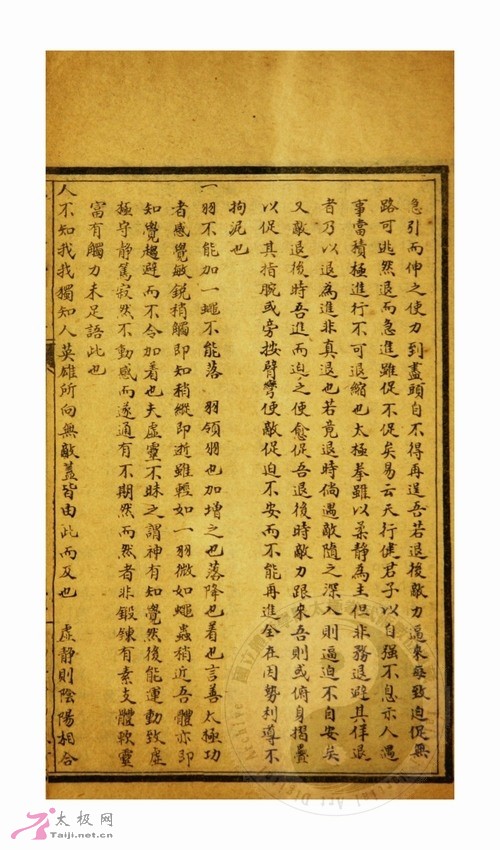 急引而伸之使力到盡頭自不得再逞吾若退後敵力逼來每致迫促無
路可逃然退而急進雖促不促矣易云天行健君子以自强不息示人遇
事當積極進行不可退縮也太極拳雖以柔靜為主但非務退避其佯退
者乃以退為進非真退也若竟退時倘遇敵隨之深入則逼迫不自安矣
又敵退後時吾進而迫之使愈促吾退後時敵力跟來吾則或俯身摺疊
以促其指腕或旁按臂彎使敵促迫不安而不能再進全在因勢利導不
拘泥也
一羽不能加一蠅不能落 羽領羽也加增之也落降也着也言善太極功
者感覺敏銳稍觸即知稍縱即逝雖輕如一羽微如蠅蟲稍近吾體亦即
知覺趨避而不令加着也夫虛靈不昧之謂神有知覺然後能運動致虛
極守靜篤寂然不動感而遂通有不期然而然者非鍛鍊有素支體軟靈
富有觸力未足語此也
人不知我我獨知人英雄所向無敵蓋皆由此而及也 虛靜則陰陽相合
太极网
Taiji.net.cn